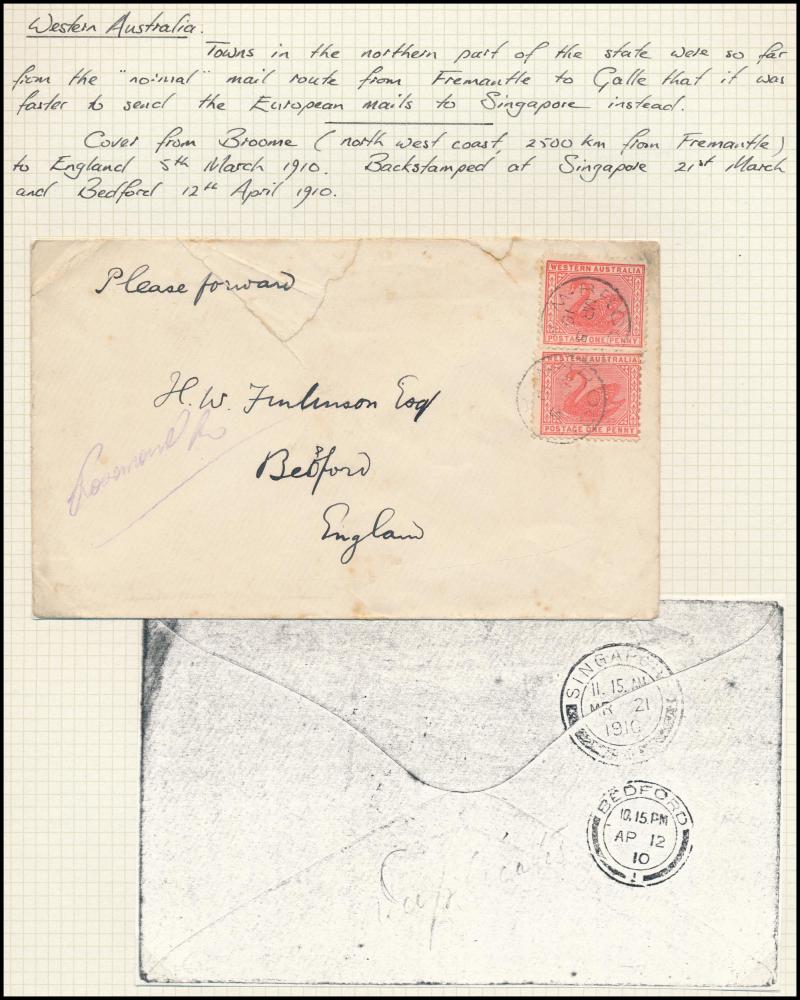 Western Australia.
Towns in the northern part of the state were so far
from the "normal" mail route from Fremantle to Galle that it was
faster to send the European mails to Singapore instead.
Cover from Broome (north west coast, 2500 km from Fremantle)
to England 5th March 1910. Backstamped at Singapore 21st March
and Bedford 12th April 1910.
Please forward
WESTERN AUSTRALIA
POSTAGE ONE PENNY
WESTERN AUSTRALIA
POSTAGE ONE PENNY
H. W. Finlinson Esq
Bedford
England
SINGAPO
11.15.AM
MR 21
1910
BEDFORD
10.15 PM
AP 12
10
1